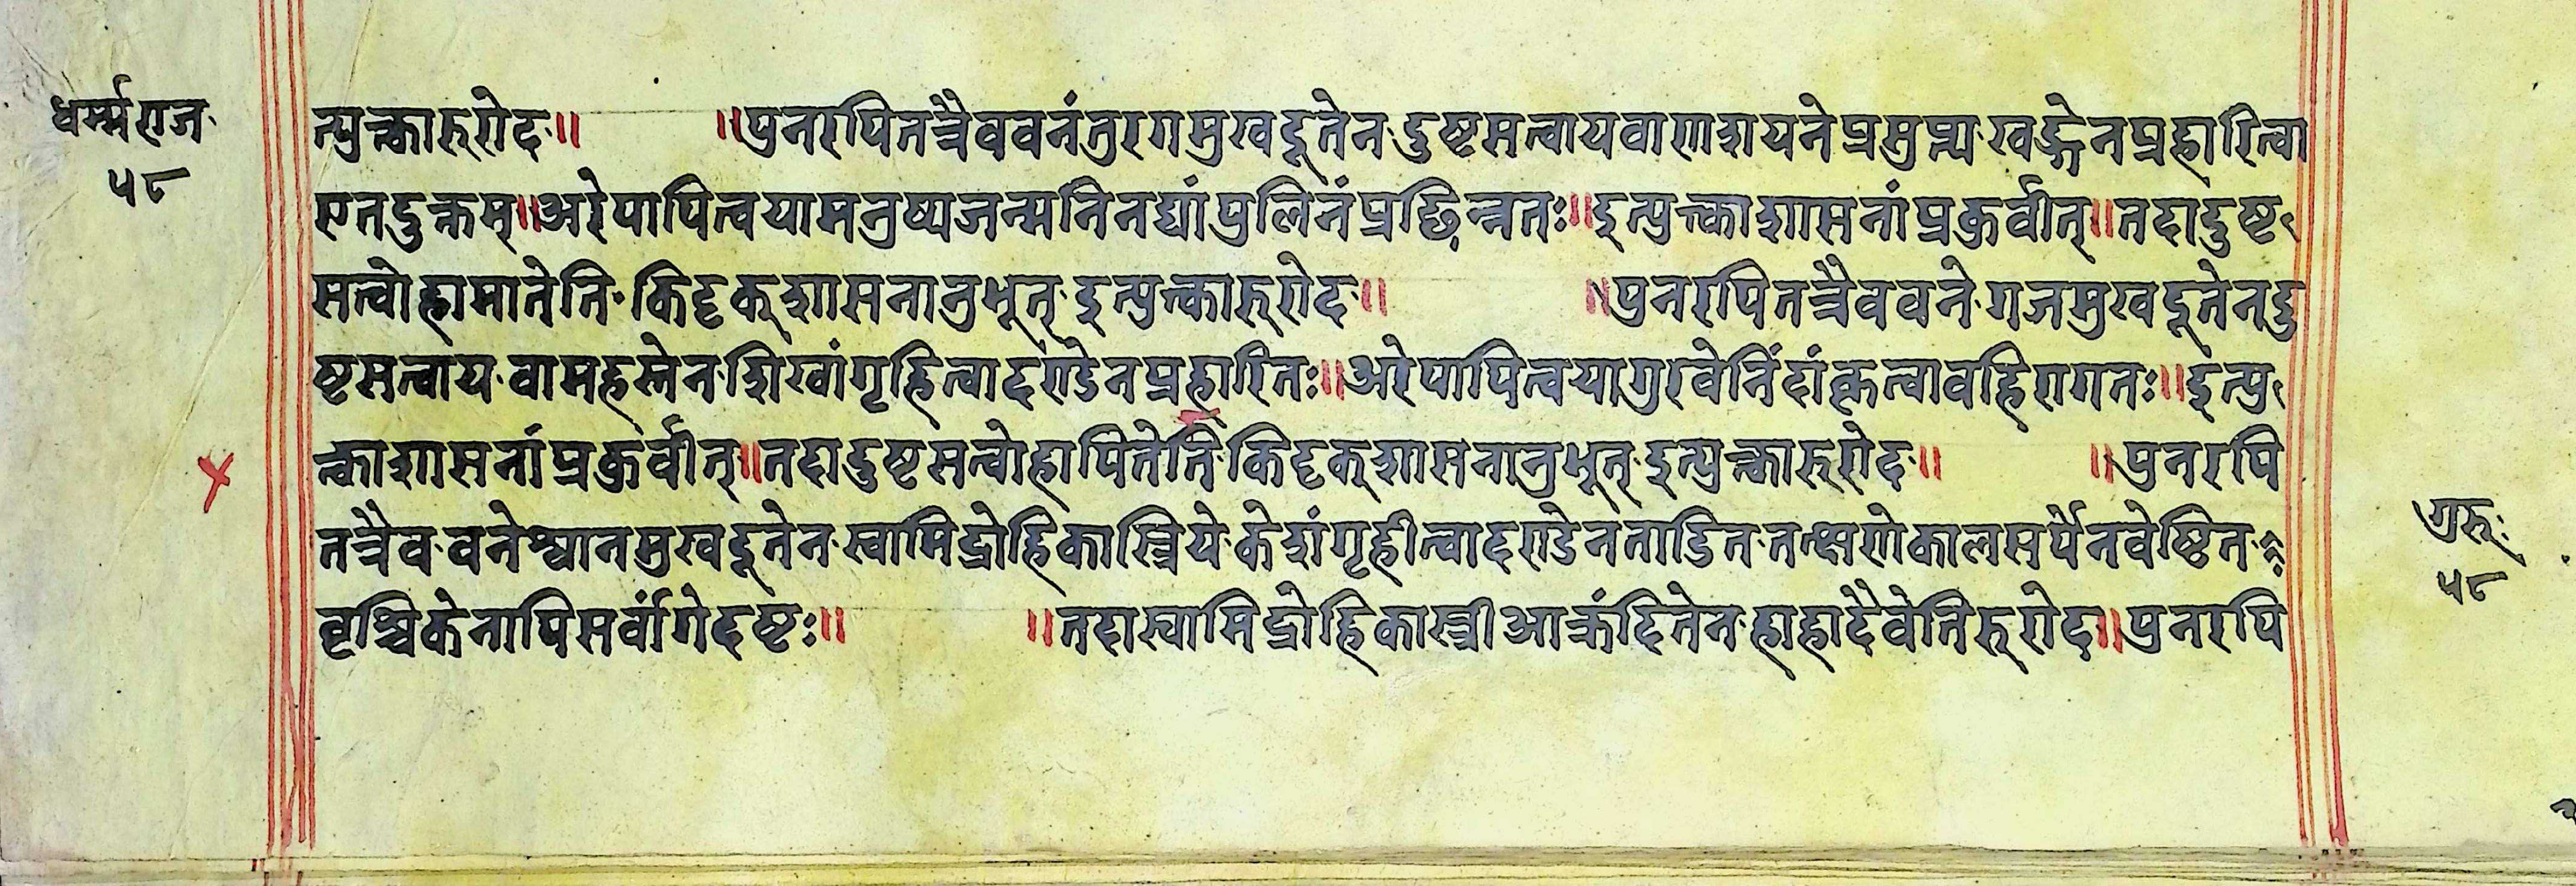 धर्म्मराज
५८
त्युक्त्वारुरोद॥ ॥पुनरपितत्रैववनंतुरगमुखदूतेन दुष्टसत्वायवाणशयनेप्रसुप्य खड्गेनप्रहारित्वा
एतदुक्तम्॥अरेपापित्वयामनुष्यजन्मनिनद्यांपुलिनंप्रछिन्नतः॥इत्युक्त्वाशासनांप्रकुर्वीत्॥तदादुष्ट
सत्वोहामातेति किदृक्शासनानुभूत् इत्युक्त्वारुरोद॥ ॥पुनरपितत्रैववने गजमुखदूतेनदु
ष्टसत्वाय वामहस्तेन शिखांगृहित्वादण्डेनप्रहारितः॥अरेपापित्वयागुरवेनिंदांकृत्वावहिरागतः॥इत्यु
क्त्वाशासनांप्रकुर्वीत्॥तदादुष्टसत्वोहापितेति किदृक्शासनानुभूत् इत्युक्त्वारुरोद॥ ॥पुनरपि
तत्रैव वनेश्वानमुखदूतेन स्वामिद्रोहिकास्त्रिये केशंगृहीत्वादण्डेनताडित तत्क्षणेकालसर्पेनवेष्टित
वृश्चिकेनापिसर्वांगेदष्टः॥ ॥तदास्वामिद्रोहिकास्त्रीआक्रंदितेन हाहादैवेतिरुरोद॥पुनरपि
गुरुः
५८